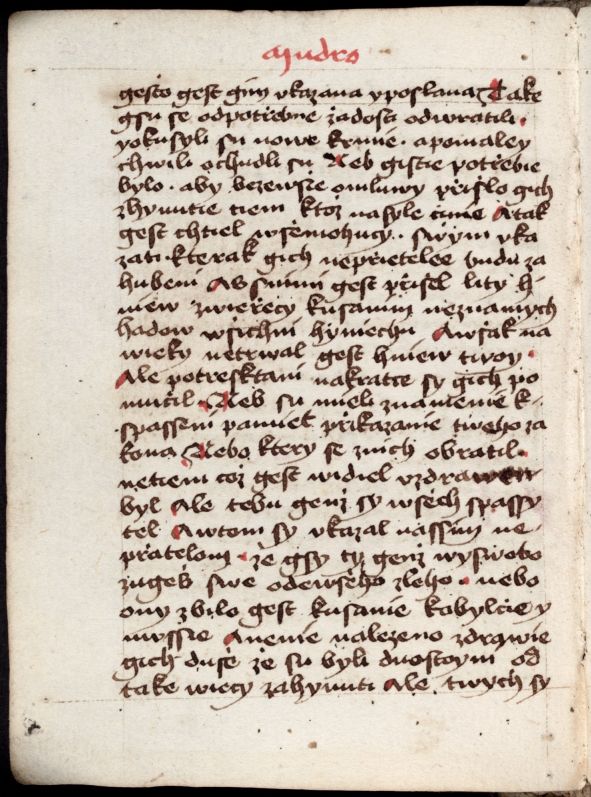 Mudro
gesto gest gim vkazana yposlana Take
gsu se odpotrebne zadosti odwratili
yokusyli su nowe krmie · apomaley
chwili ochudli su Neb gistie potrebie
bylo · aby bezewsie omluwy prisslo gich
zhynutie tiem ktoz nasyle cinie Atak
gest chtiel wsemohucy · swym vka
zati · kterak gich neprietelee budu za
hubeni Assnimi gest prisel lity h
niew zwierecy kusanim neznamych
hadow wsichni hyniechu Awsak na
wieky netrwal gest hniew twoy
Ale potresktani nakratce sy gich po
mutil Neb su mieli znamenie k
spasseni pamiet prikazanie tweho za
kona Nebo ktery se znich obratil
netiem coz gest widiel vzdrawen
byl Ale tebu genz sy wsech spassy
tel Awtom sy vkazal nassim ne
pratelom · ze gsy ty genz wyswobo
zugess swe odewseho zleho · nebo
ony zbilo gest kusanie kobylcie y
mussie Anenie nalezeno zdrawie
gich duse ze su byli dnostoyni od
take wiecy zahynuti Ale twych sy